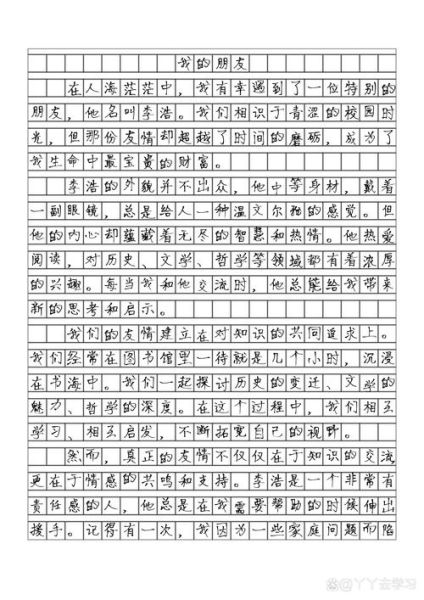 我的朋友
在人海茫茫中，我有幸遇到了一位特别的
朋友，他名叫李浩。我们相识于青涩的校园时
光，但那份友情却超越了时间的磨砺，成为了
我生命中最宝贵的财富。
李浩的外貌并不出众，他中等身材，戴着
一副眼镜，总是给人一种温文尔雅的感觉。但
他的内心却蕴藏着无尽的智慧和热情。他热爱
阅读，对历史、文学、哲学等领域都有着浓厚
的兴趣。每当我和他交流时，他总能给我带来
新的思考和启示。
我们的友情建立在对知识的共同追求上。
我们经常在图书馆里一待就是几个小时，沉浸
在书海中。我们一起探讨历史的变迁、文学的
魅力、哲学的深度。在这个过程中，我们相互
学习、相互启发，不断拓宽自己的视野。
然而，真正的友情不仅仅在于知识的交流，
更在于情感的共鸣和支持。李浩是一个非常有
责任感的人，他总是在我需要帮助的时候伸出
援手。记得有一次，我因为一些家庭问题而陷
@丫丫去学习